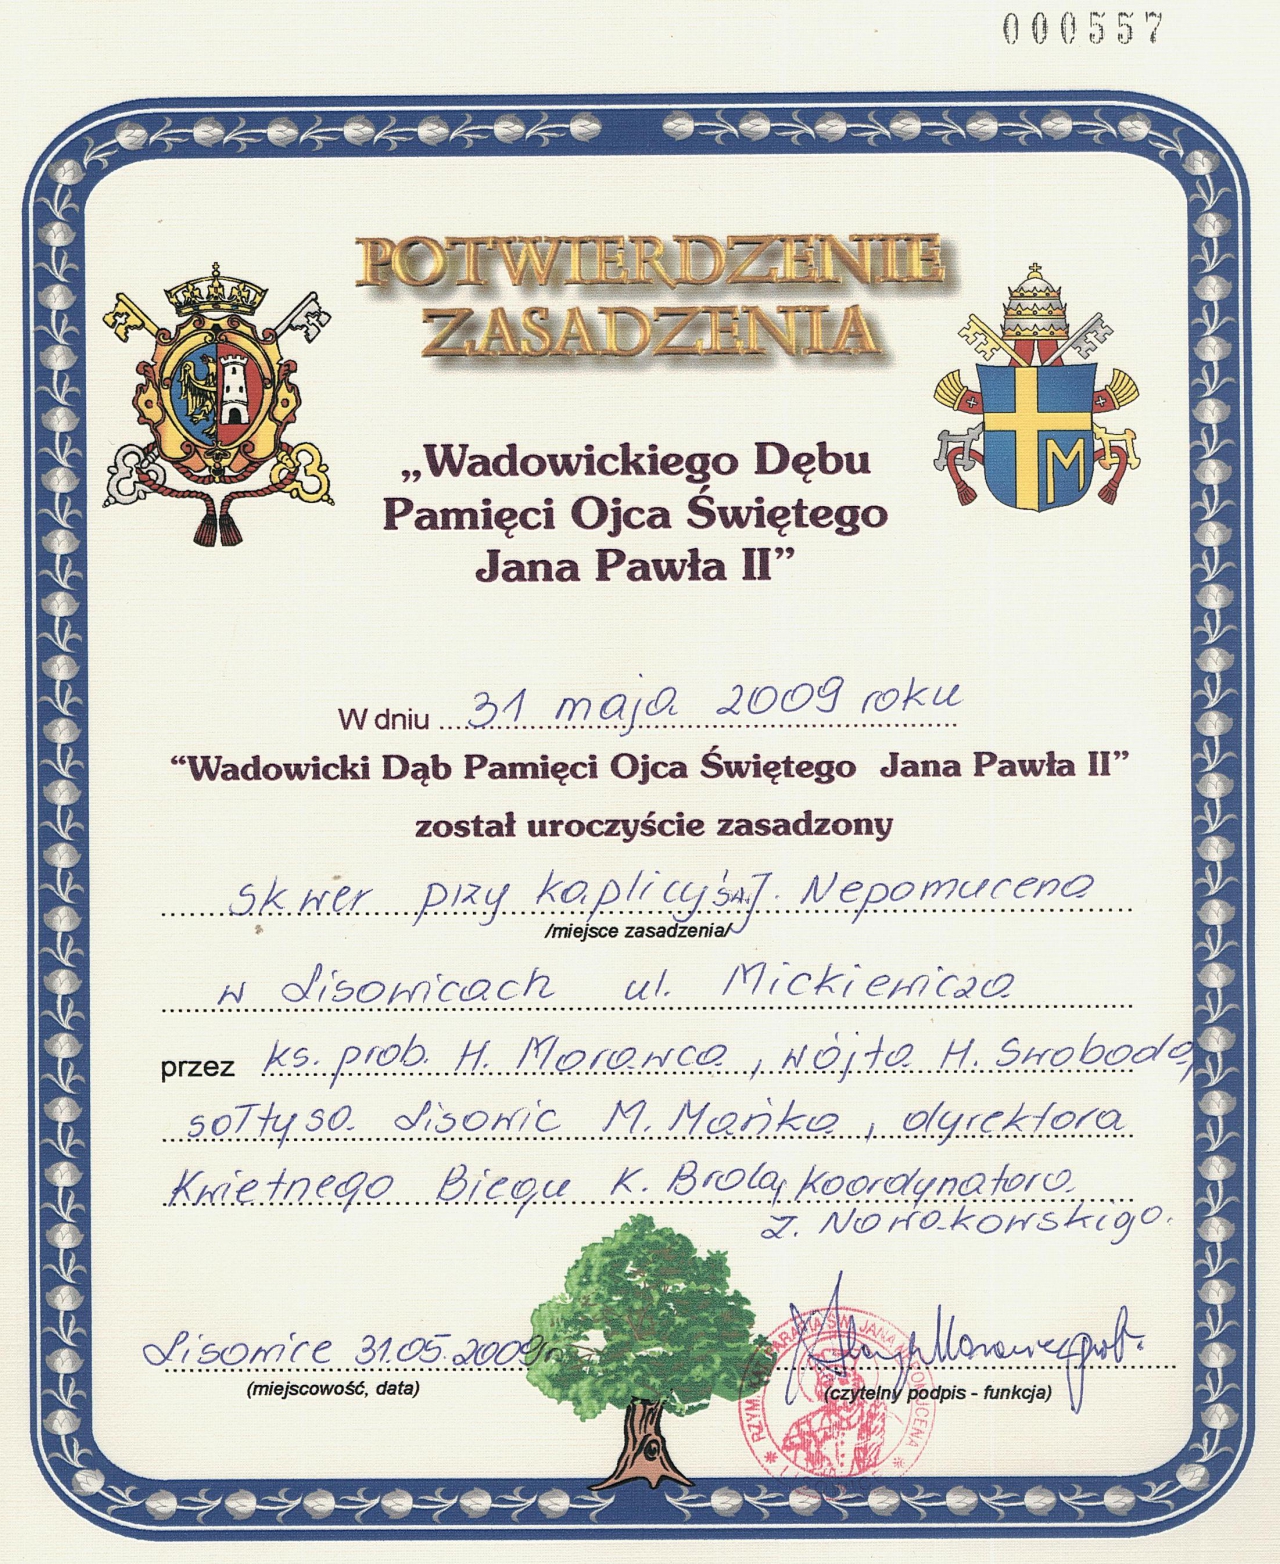 000557
POTWIERDZENIE
ZASADZENIA
„Wadowickiego Dębu
Pamięci Ojca Świętego
Jana Pawła II”
W dniu 31 maja 2009 roku
“Wadowicki Dąb Pamięci Ojca Świętego Jana Pawła II”
został uroczyście zasadzony
skwer przy kaplicy św. J. Nepomucena
/miejsce zasadzenia/
w Lisowicach ul. Mickiewicza
przez ks. prob. H. Morawca, wójta H. Swobodą,
sołtysa Lisowic M. Mańka, dyrektora
Kwietnego Biegu K. Brolą, koordynatora
Z. Nowakowskigo.
M
Lisowice 31.05.2009r.
(miejscowość, data)
(czytelny podpis - funkcja)
RZYM. PARAFIA ŚW. JANA NEPOMUCENA